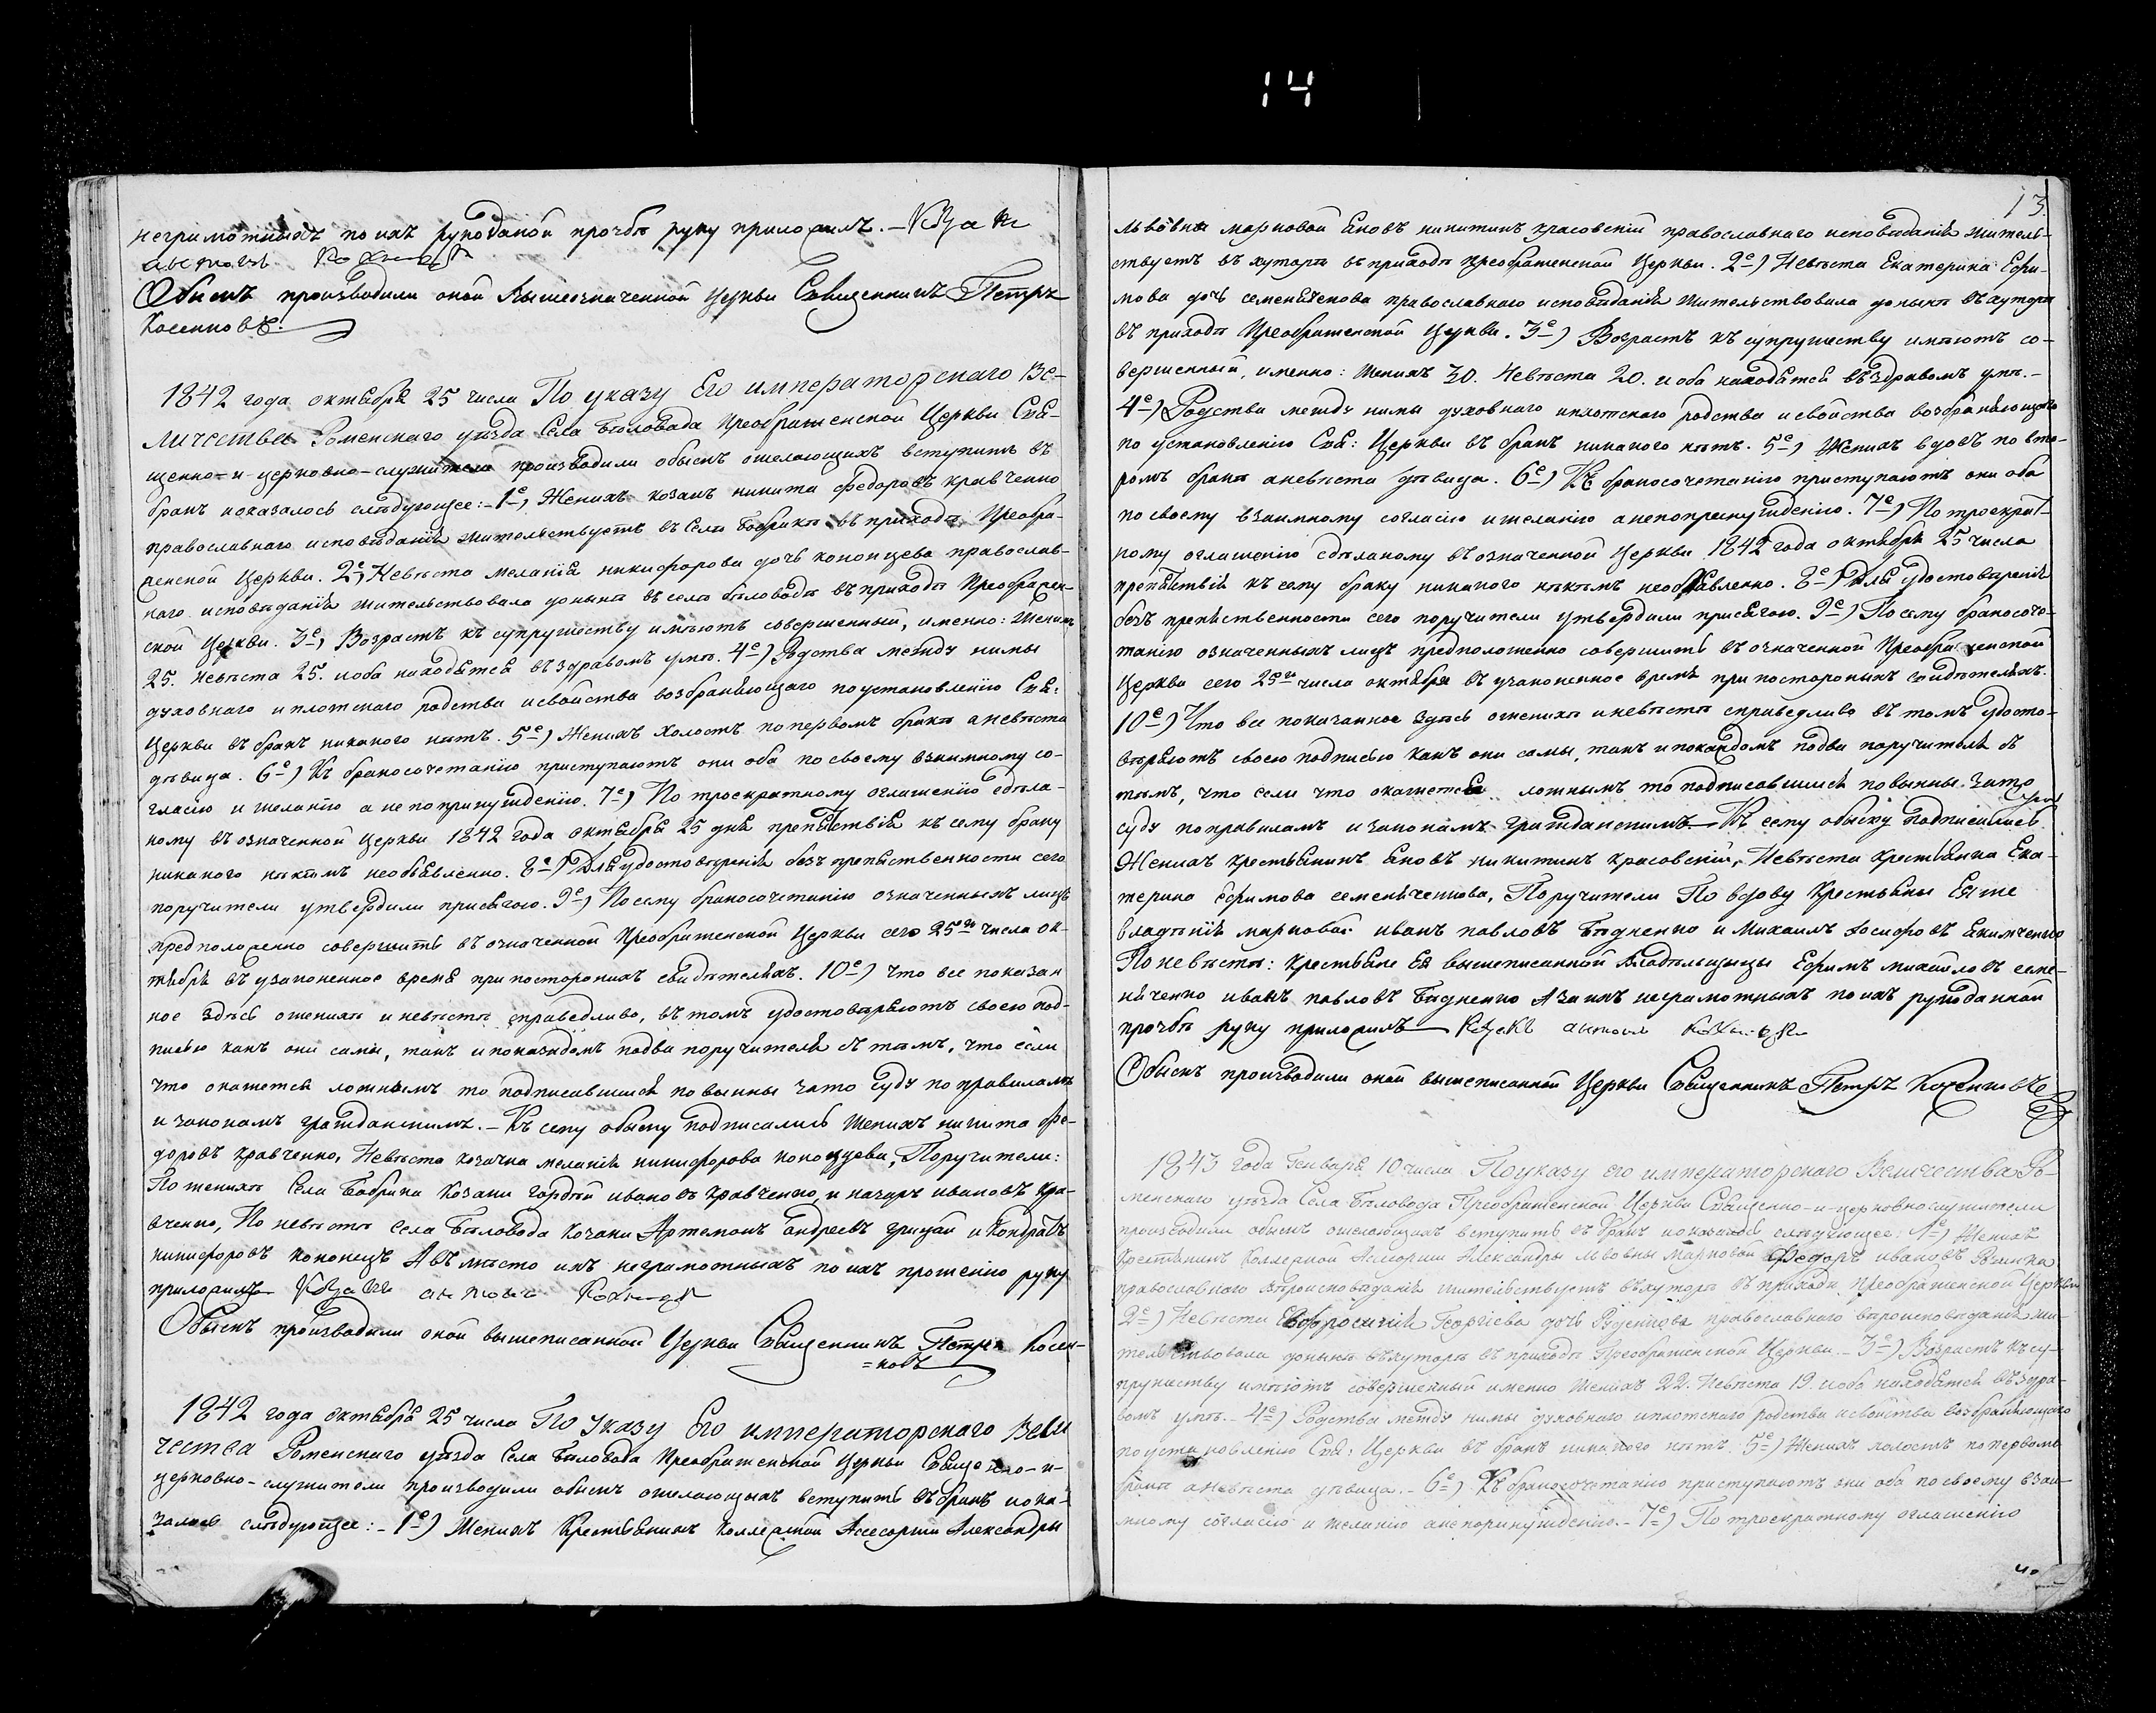 14
неграмотныхъ по ихъ рукоданой прочбѣ руку приложилъ. - Козакъ
Обыскъ производили оной вышеозначенной Церкви Священникъ Петръ
Косенковъ.
1842 года октября 25 числа По указу Его императорскаго Ве-
личества Роменскаго уѣзда Села Бѣловода Преображенской Церкви Свя-
щенно-и-церковно-служители производили обыскъ ожелающихъ вступить въ
бракъ ипоказалось слѣдующее: - 1е, Женихъ козакъ никита федоровъ кравченко
православнаго исповѣданія жительствуетъ въ Селѣ Бобрикѣ въ приходѣ Преобра-
женской Церкви. 2е, Невѣста меланія никифорова дочь кононцева православ-
наго исповѣданія жительствовала донынѣ въ селѣ бѣловодѣ въ приходѣ Преображен-
ской Церкви. 3е, Возрастъ къ супружеству имѣютъ совершенный, именно: Женихъ
25. Невѣста 25. иоба находятся въ здравомъ умѣ. 4е) Родства между ними
духовнаго и плотскаго родства исвойства возбраняющаго поустановленію Свя:
Церкви въ бракъ никакого нѣтъ. 5е) Женихъ холостъ попервомъ бракѣ аневѣста
дѣвица. 6е) Къ бракосочетанію приступаютъ они оба по своему взаимному со-
гласію и желанію а не по принужденію. 7е) По троекратному оглашенію сдѣла-
ному въ означенной Церкви 1842 года октября 25 дня препятствія къ сему браку
никакого никѣмъ необъявленно. 8е) Для удостовѣренія безъ препятственности сего
поручители утвердили присягою. 9е) Посему бракосочетанію означенныхъ лицъ
предположенно совершить въ означенной Преображенской Церкви сего 25го числа ок-
тября въ узаконенное время при постороннихъ свидѣтеляхъ. 10е) Что все показан
ное здѣсь оженихѣ и невѣстѣ справедливо, въ томъ удостовѣряютъ своею под-
писью какъ они сами, такъ и покаждомъ подва поручителя съ тѣмъ, что если
что окажется ложнымъ то подписавшися повинны зато суду по правиламъ
и законамъ гражданскимъ. - Къ сему обыску подписались Женихъ никита фе-
доровъ кравченко, Невѣста козачка меланія никифорова кононцева, Поручители:
По женихѣ Села Бобрика Козаки гордѣй ивановъ кравченко и назаръ ивановъ кра-
вченко, По невѣстѣ села Бѣловода Козаки Артемонъ андреевъ грицай и Кондратъ
никифоровъ кононецъ А вѣмѣсто ихъ неграмотныхъ по ихъ прошенію руку
приложилъ Козакъ
Обыскъ производили оной вышеписанной Церкви Священникъ Петръ Косен-
=ковъ
1842 года октября 25 числа По Указу Его императорскаго Вели
чества Роменскаго уѣзда Села Бѣловода Преображенской Церкви Священно-и-
церковно-служители производили обыскъ ожелающихъ вступить въ бракъ ипока-
залось слѣдующее: - 1е) Женихъ Крестьянинъ Коллежской Ассесорши Александры
13.
Львовны марковой яковъ никитинъ красовскій православнаго исповѣданія житель-
ствуетъ въ хуторѣ въ приходѣ преображенской Церкви. 2е) Невѣста Екатерина Ефи-
мова дочь семеняченкова православнаго исповѣданія жительствовала донынѣ въ хуторѣ
въ приходѣ Преображенской Церкви. 3е) Возрастъ къ супружеству имѣютъ со-
вершенный, именно: Женихъ 30. Невѣста 20. и оба находятся въ здравомъ умѣ. -
4е) Родства между ними духовнаго иплотскаго родства и свойства возбраняющаго
по установленію Свя: Церкви въ бракъ никакого нѣтъ. 5е) Женихъ вдовъ по вто-
ромъ бракѣ аневѣста дѣвица. 6е) Къ бракосочетанію приступаютъ они оба
по своему взаимному согласію и желанію анепопринужденію. 7е) По троекрат-
ному оглашенію сдѣланому въ означенной Церкви 1842 года октября 25 числа
препятствія къ сему браку никакого никѣмъ необъявленно. 8е) Для удостовѣренія
безъ препятственности сего поручители утвердили присягою. 9е) Посему бракосоче-
танію означенныхъ лицъ предположенно совершить въ означенной Преображенской
Церкви сего 25го числа октября въ узаконенное время при посторонихъ свидѣтеляхъ.
10е) Что все показанное здѣсь оженихѣ и невѣстѣ справедливо въ томъ удосто-
вѣряютъ своею подписью какъ они самы, такъ и покаждомъ подва поручителя съ
тѣмъ, что если что окажется ложнымъ то подписавшися повинны зато
суду по правиламъ и законамъ гражданскимъ - Къ сему обыску подписались
Женихъ крестьянинъ яковъ никитинъ красовскій, Невѣста крестьянка Ека-
терина Ефимова семеняченкова, Поручители По вдову Крестьяны Еяже
владѣнія марковой иванъ павловъ Бѣдненко и Михаилъ Іосифовъ Якимченко
По невѣстѣ: крестьяне Ея вышеписанной владѣльцицы Ефимъ михайловъ семе-
няченко иванъ павловъ Бѣдненко Азаихъ неграмотныхъ по ихъ рукоданной
прочбѣ руку приложилъ Козакъ
Обыскъ производили оной вышеписанной Церкви Священникъ Петръ Косенковъ
1843 года Генваря 10 числа По указу его императорскаго Величества Ро-
менскаго уѣзда Села Бѣловода Преображенской Церкви Священно-и-церковнослужители
производили обыскъ ожелающихъ вступить въ бракъ ипоказалось слѣдующее: 1е) Женихъ
Крестьянинъ Коллежской Ассесорши Александры Львовны Марковой Федоръ ивановъ
православнаго вѣроисповѣданія жительствуетъ въ хуторѣ въ приходѣ Преображенской Церкви
2е) Невѣста Евфросинія Георгіева дочь православнаго вѣроисповѣданія жи-
тельствовала донынѣ въ хуторѣ въ приходѣ Преображенской Церкви. - 3е) Возрастъ къ су-
пружеству имѣютъ совершенный именно Женихъ 22. Невѣста 19. иоба находятся въ здра-
вомъ умѣ. - 4е) Родства между ними духовнаго иплотскаго родства исвойства возбраняющаго
по установленію Свя: Церкви въ бракъ никакого нѣтъ. 5е) Женихъ холостъ попервомъ
бракѣ аневѣста дѣвица. - 6е) Къ бракосочетанію приступаютъ они оба по своему взаи-
мному согласію и желанію - 7е) По троекратному оглашенію